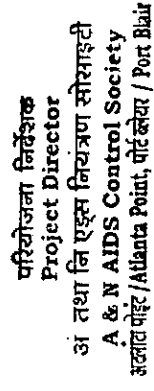 परियोजना निर्देशक
Project Director
अं तथा नि एड्स नियंत्रण सोसाइटी
A & N AIDS Control Society
अटलांटा पोइंट /Atlanta Point, पोर्ट ब्लेयर / Port Blair